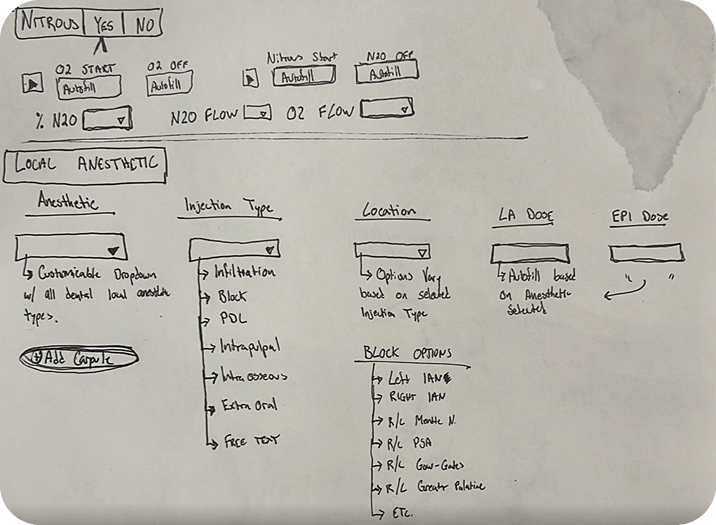 NITROUS YES NO
O2 START O2 OFF Nitrous Start N2O OFF
Autofill Autofill Autofill Autofill
% N2O N2O FLOW O2 FLOW
LOCAL ANESTHETIC
Anesthetic Injection Type Location LA DOSE EPI Dose
Customizable Dropdown
w/ all dental local anesthetic
types.
+ Add Carpule
Infiltration
Block
PDL
Intrapulpal
Intraosseous
Extra Oral
FREE TEXT
Options Vary
based on selected
Injection Type
BLOCK OPTIONS
Left IAN
RIGHT IAN
R/L Mental N.
R/L PSA
R/L Gow-Gates
R/L Greater Palatine
ETC.
Autofill based
on Anesthetic
Selected
" "